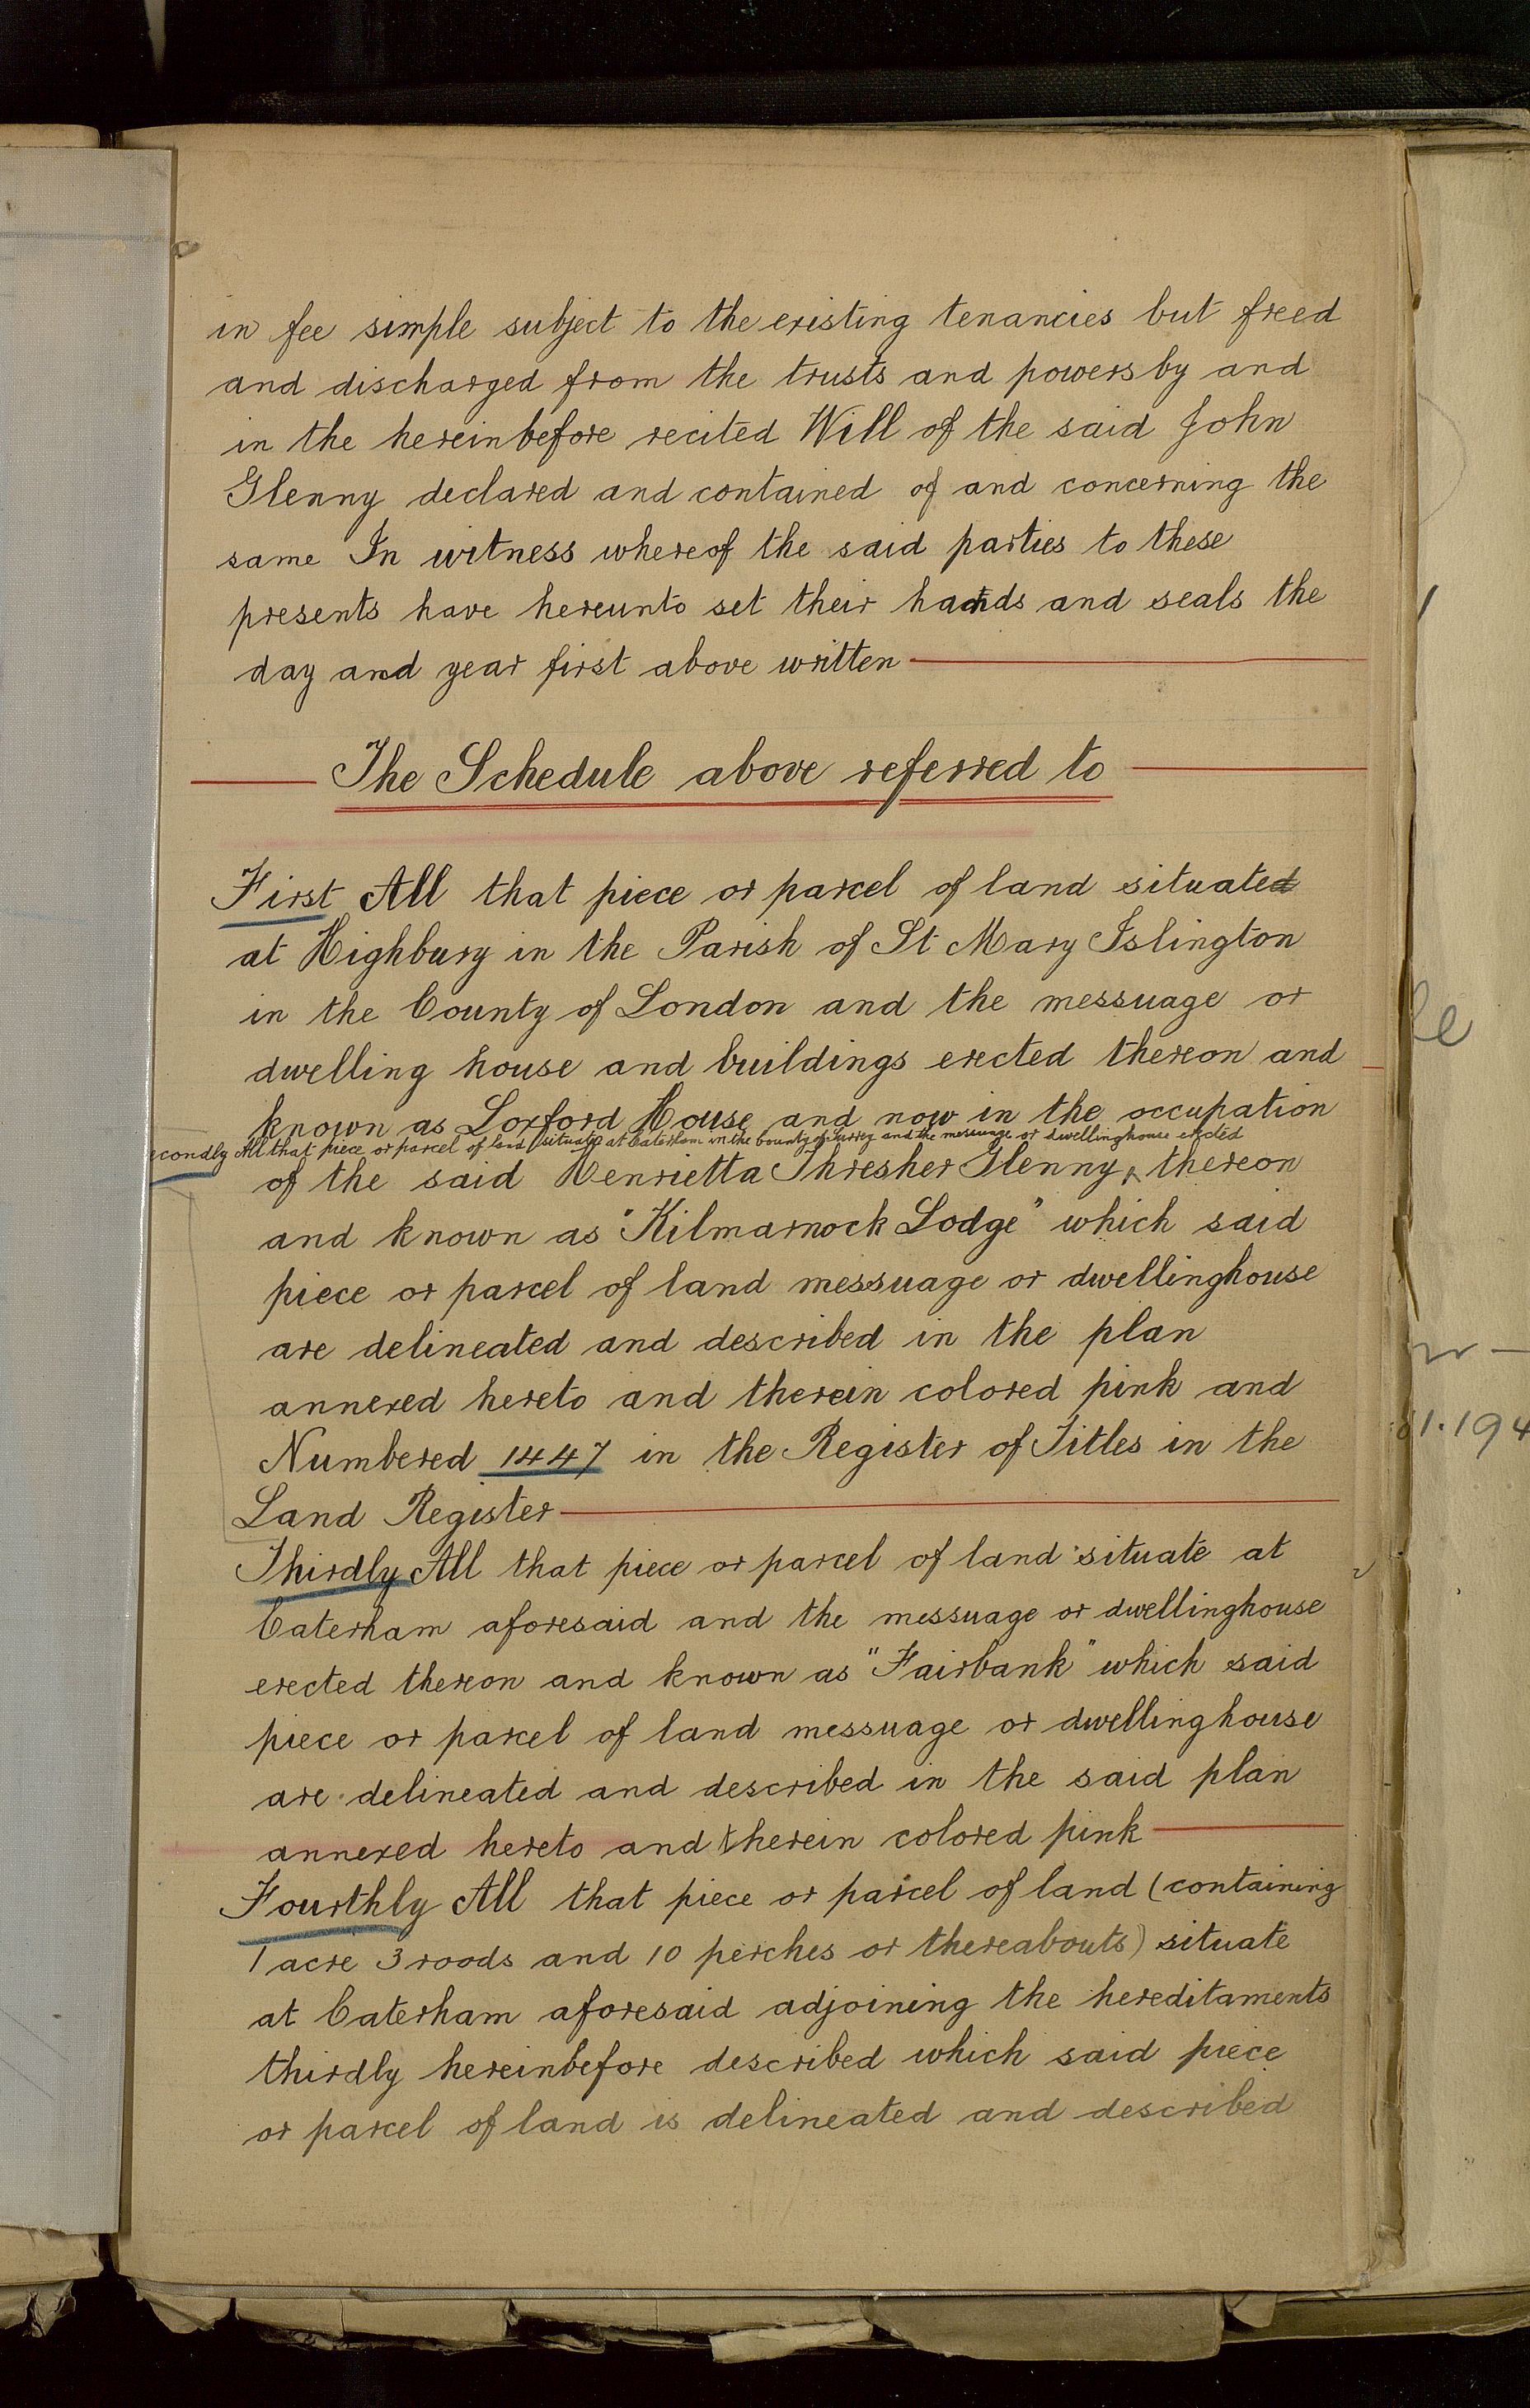 in fee simple subject to the existing tenancies but freed
and discharged from the trusts and powers by and
in the hereinbefore recited Will of the said John
Glenny declared and contained of and concerning the
same In witness whereof the said parties to these
presents have hereunto set their hands and seals the
day and year first above written
The Schedule above referred to
First All that piece or parcel of land situated
at Highbury in the Parish of St Mary Islington
in the County of London and the messuage or
dwelling house and buildings erected thereon and
known as Loxford House and now in the occupation
econdly All that piece or parcel of land situate at Caterham in the County of Surrey and the messuage or dwellinghouse erected
of the said Henrietta Thresher Glenny ^ thereon
and known as "Kilmarnock Lodge" which said
piece or parcel of land messuage or dwellinghouse
are delineated and described in the plan
annexed hereto and therein colored pink and
Numbered 1447 in the Register of Titles in the
Land Register
Thirdly All that piece or parcel of land situate at
Caterham aforesaid and the messuage or dwellinghouse
erected thereon and known as "Fairbank" which said
piece or parcel of land messuage or dwellinghouse
are delineated and described in the said plan
annexed hereto and therein colored pink
Fourthly All that piece or parcel of land (containing
1 acre 3 roods and 10 perches or thereabouts) situate
at Caterham aforesaid adjoining the hereditaments
thirdly hereinbefore described which said piece
or parcel of land is delineated and described